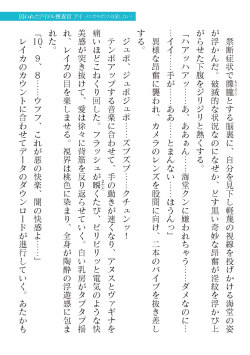 囚われたアイドル捜査官 アイ
禁断症状で朦朧とする脳裏に、自分を見下し軽蔑の視線を投げかける海堂の姿
が浮かんだ。破滅的な状況なのになぜかどす黒い奇妙な昂奮が淫紋を浮かび上
がらせた下腹をジリジリと熱くする。
『ハアッハアッ……あ、あぁんっ……海堂クンに嫌われちゃう……ダメなのに…
…イイッ……ああ……とまんない……はうんっ』
異様な昂奮に襲われ、カメラのレンズを股間に向け、二本のバイブを抜き差し
する。
ジュポ、ジュボジュポッ……ズブズブ……クチュンッ……
テンポアップする音楽に合わせて、手の動きが速くなり、アヌスとヴァギナを
痛いほどこねくり回した。フラッシュが瞬くたび、ビリビリッと電気のような快
美感が突き抜けて、愛は徐々に背筋を反り返らせていく。白い乳房がタプタプ揺
れ、レイカの目を楽しませる。視界は桃色に染まり、全身が陶酔の浮遊感に包ま
れ
『10、9、8……ウフフ、これが悪の快楽、闇の快感よ……』
レイカのカウントに合わせてデータのダウンロードが進行していく。あたかも